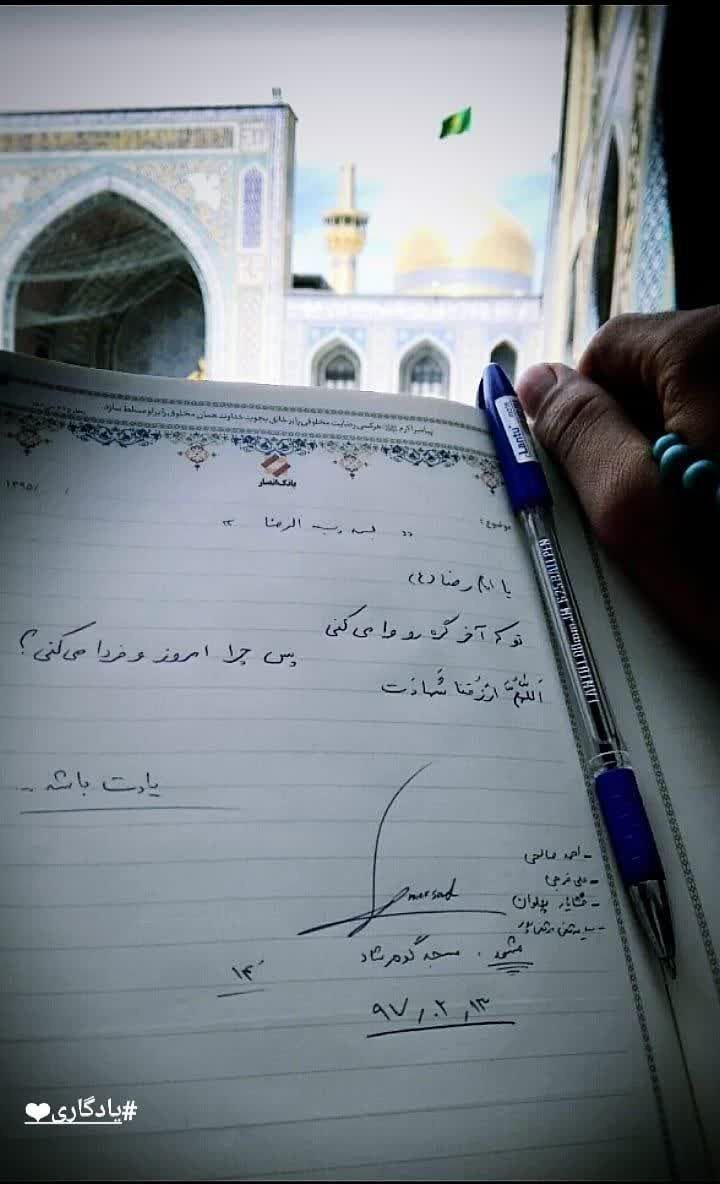 پیامبر اکرم ﷺ: هرکسی رضایت مخلوقی را بر خالق بجوید خداوند همان مخلوق را بر او مسلط سازد.
بانک انصار
۱۳۹۵/ /
موضوع:
«بسم رب الرضا»
یا امام رضا (ع)
تو که آخر گره رو وا می‌کنی
پس چرا امروز و فردا می‌کنی؟
اَللهُمَّ ارْزُقنا شَهادَت
یادت باشه ..
mersad
- احمد صالحی
- علی فرجی
- پهلوان
مشهد، مسجد گوهرشاد
۱۴
۹۷٫۰۲٫۱۳
Lantu
#یادگاری❤